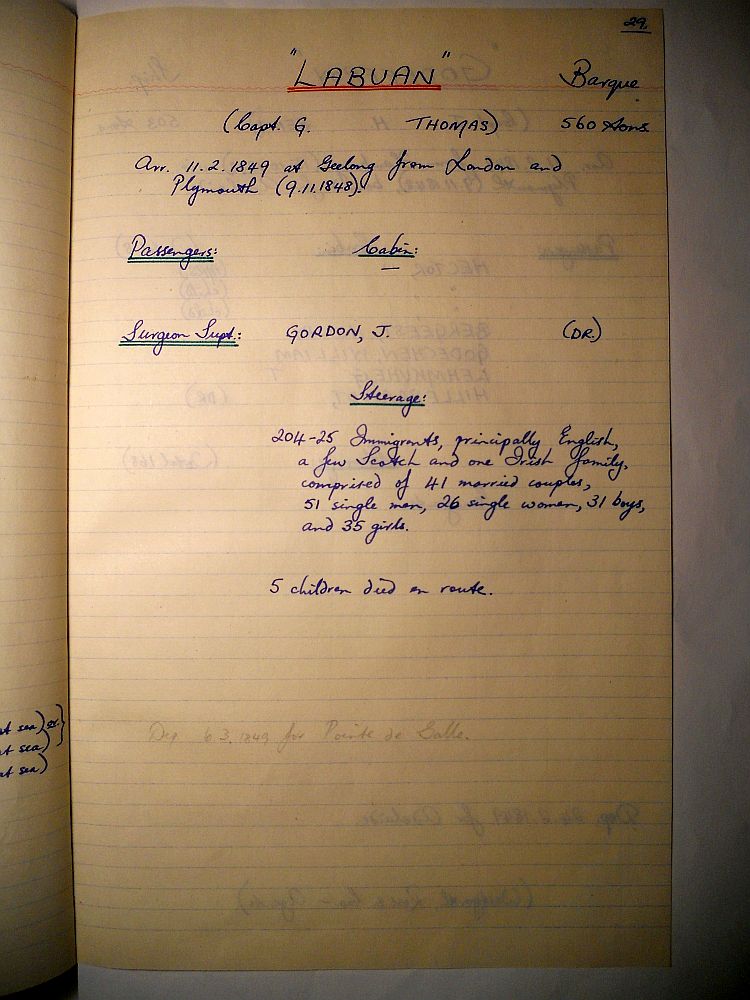 29.
"LABUAN" Barque
(Capt. G. THOMAS) 560 tons.
Arr. 11.2.1849 at Geelong from London and
Plymouth (9.11.1848).
Passengers: Cabin:
—
Surgeon Supt.: GORDON, J. (DR.)
Steerage:
204-25 Immigrants, principally English,
a few Scotch and one Irish family,
comprised of 41 married couples,
51 single men, 26 single women, 31 boys,
and 35 girls.
5 children died en route.
at sea)
at sea)
at sea)
Dep 6.3.1849 for Pointe de Galle.